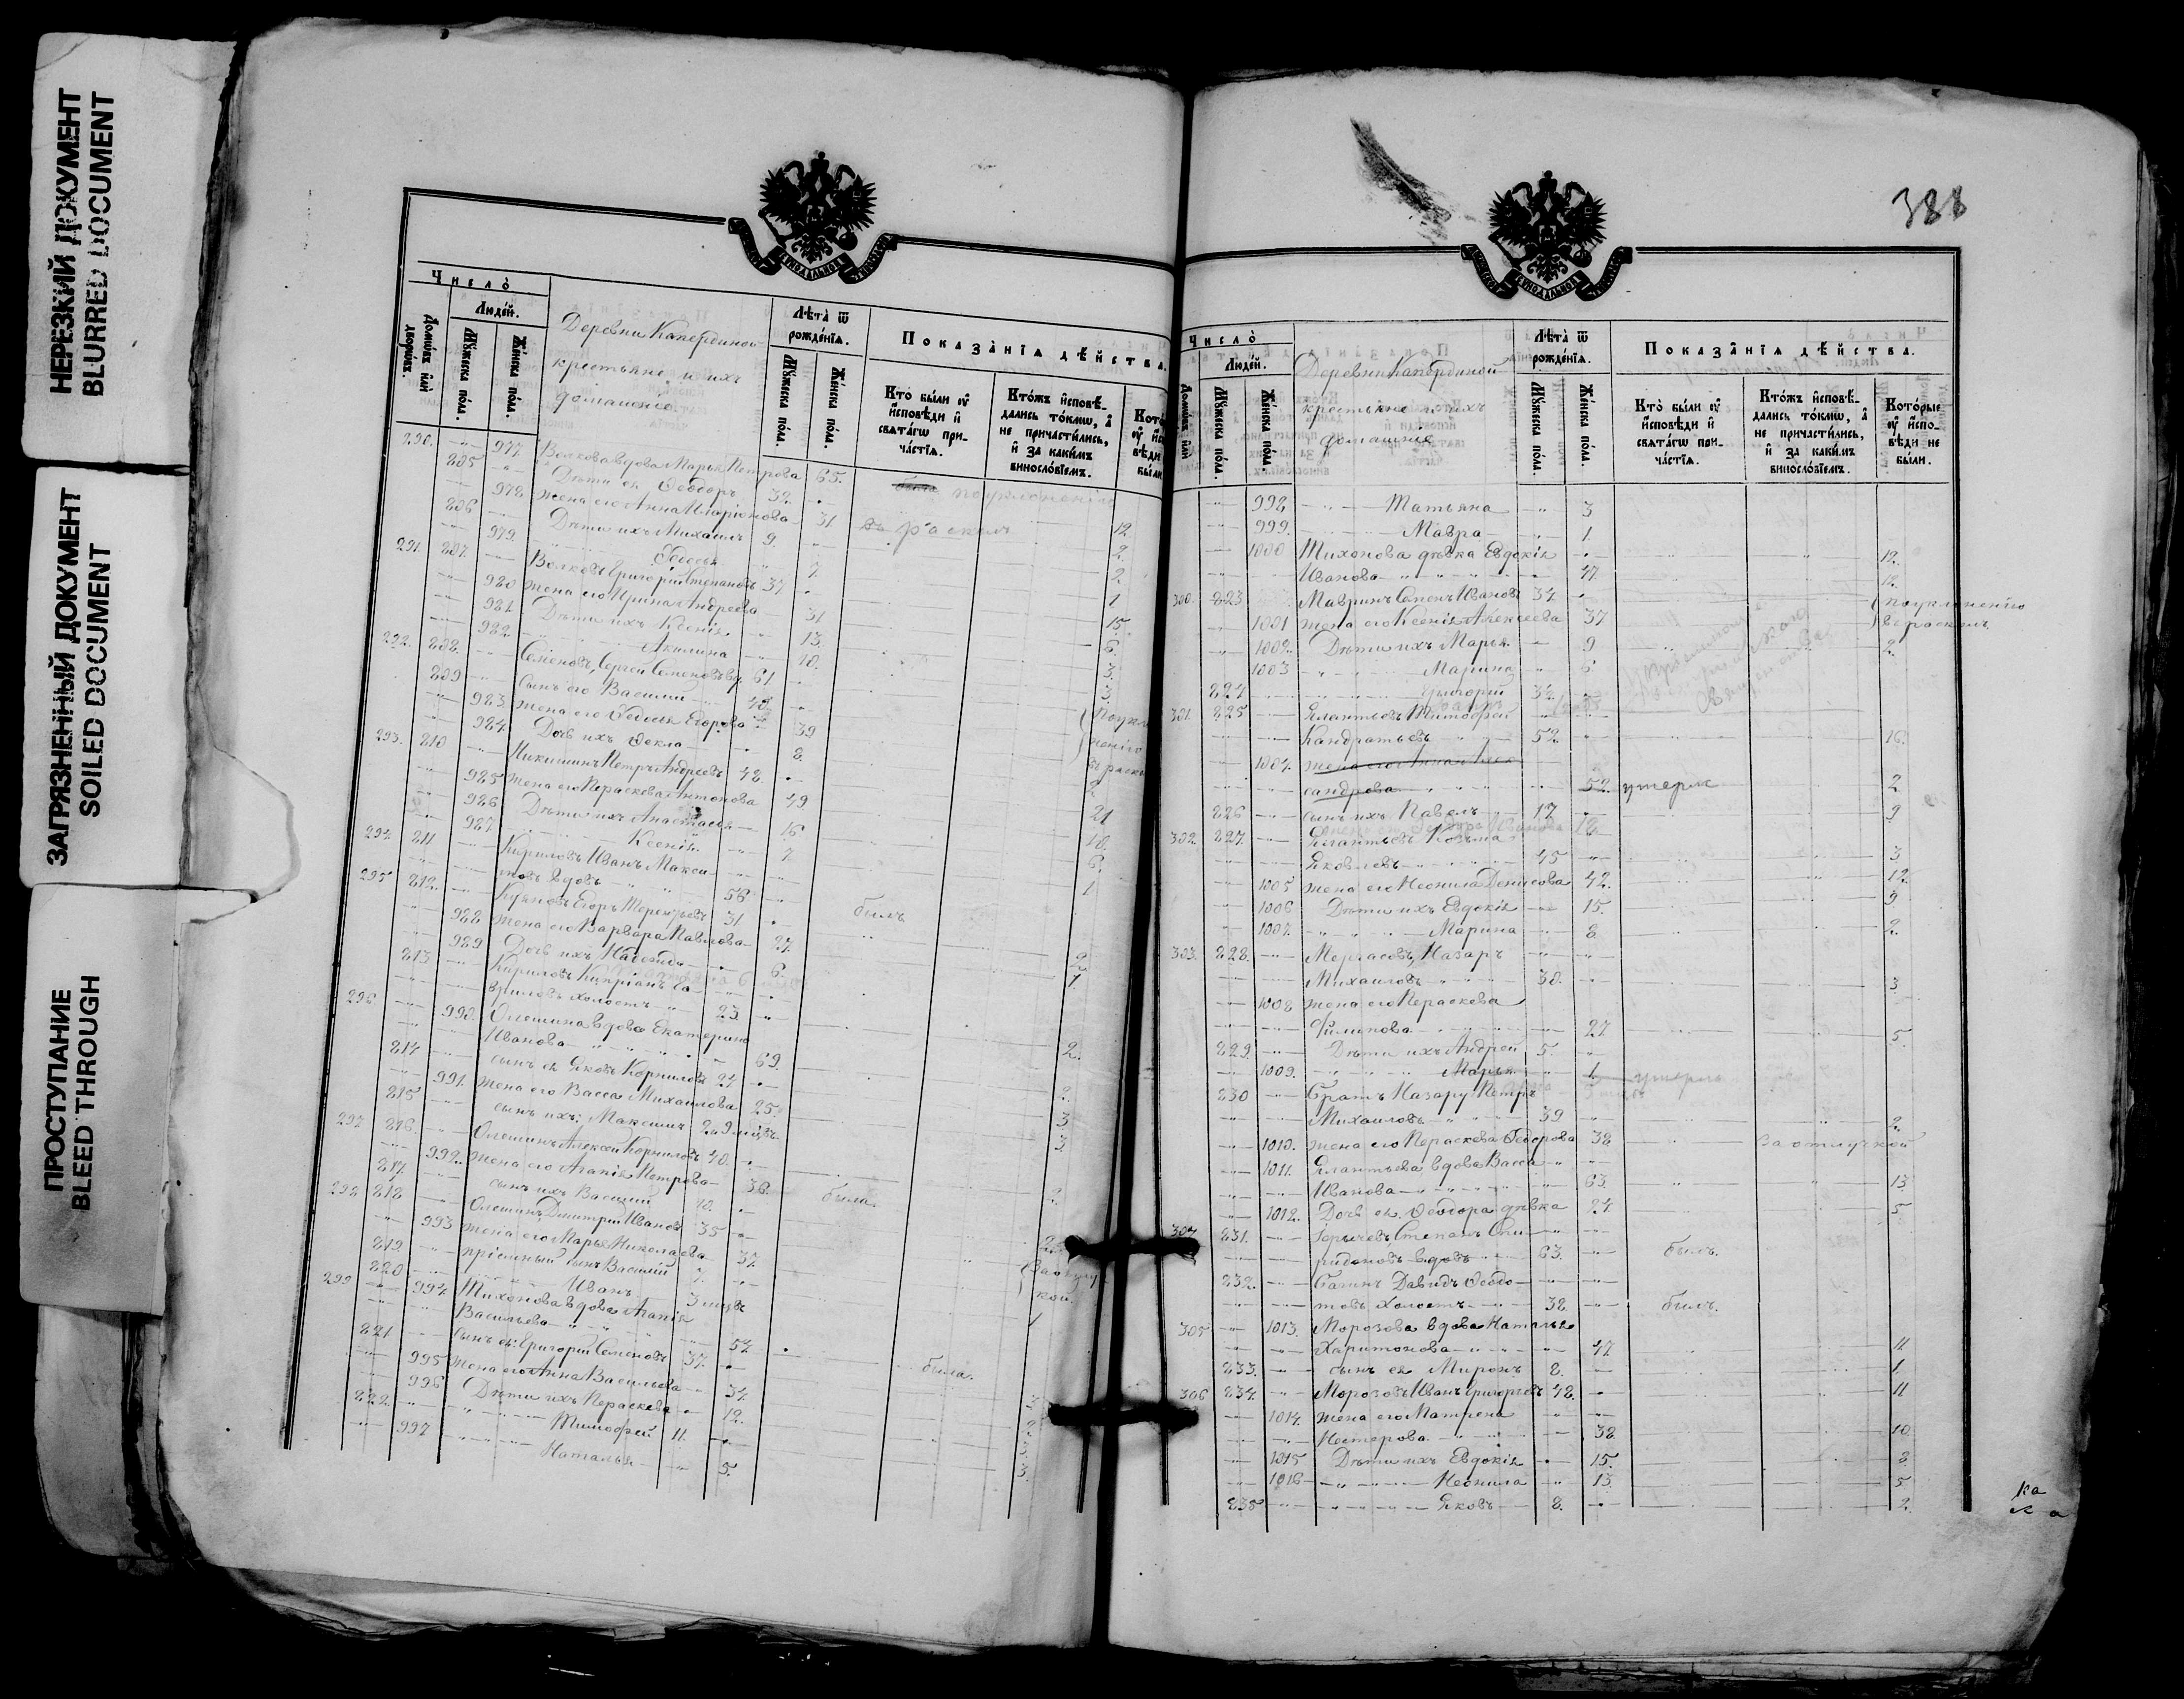 НЕРЕЗКИЙ ДОКУМЕНТ
BLURRED DOCUMENT
ЗАГРЯЗНЕННЫЙ ДОКУМЕНТ
SOILED DOCUMENT
ПРОСТУПАНИЕ
BLEED THROUGH
Число̀
Людей.
Домѡвъ или дворѡвъ.
Мꙋжеска пола.
Женска пола.
Деревни Капердиной
крестьяне и ихъ
домашніе
Лѣта ѿ рожденїѧ.
Мꙋжеска пола.
Женска пола.
Показанїѧ дѣйства.
Кто были ᲂу исповѣди и свѧтагѡ причастїѧ.
Ктожъ исповѣдались токмѡ, а не причастились, и за какимъ винословїемъ.
290. 977 Волкова вдова Марья Петрова 65.
805 Дѣти ея Ѳеодоръ 32.
978 жена его Анна Иларіонова 31
806 Дѣти ихъ Михаилъ 9. 2.
979 Ѳедосья 7. 2.
291. 807 Волковъ Григорій Степановъ 37 1
980 жена его Ирина Андреева 31 15
981 Дѣти ихъ Ксенія 13. 6.
982 Акилина 10. 3.
292. 808. Семеновъ, Сергей Семеновъ вд. 61 3.
809 сынъ его Василій 40
983 жена его Ѳедосья Егорова 39
984 Дочь ихъ Ѳекла 8.
293. 810 Никишинъ Петръ Андреевъ 48.
985 жена его Пераскева Антонова 49 21
986 Дѣти ихъ Анастасія 16 10.
987 Ксенія 7 6.
294. 811 Кириловъ Иванъ Макси- 1
мовъ вдовъ 56 былъ
295 812. Егоръ Терентьевъ 31
988 жена его Варвара Павлова 27.
989 Дочь ихъ Надежда 6.
813 Кириловъ Кипріанъ Га-
вриловъ холостъ 23.
296 990. Олешина вдова Екатерина
Иванова 69. 2.
814 сынъ ея Яковъ Корниловъ 27
991. жена его Васса Михаилова 25. 2.
815 сынъ ихъ: Максимъ 3
297 816. Олешинъ Алексѣй Корниловъ 40. 3.
992. жена его Агапія Петрова 36. была.
817. сынъ ихъ Василій 10. 2
298 818 Олешинъ Дмитрій Ивановъ 35
993 жена его Марья Николаева 37.
819. пріемный сынъ Василій 7.
820 Иванъ
299 994 Тихонова вдова Агапія
Васильева 57. была.
821 сынъ ея: Григорій Семеновъ 37.
995 жена его Анна Васильева 34
996 Дѣти ихъ Пераскева 12.
822. Тимофей 11.
997 Наталья 5.
388
Число̀
Людей.
Мꙋжеска пола.
Женска пола.
Деревни Капердиной
крестьяне и ихъ
домашніе
Лѣта ѿ рожденїѧ.
Мꙋжеска пола.
Женска пола.
Показанїѧ дѣйства.
Кто были ᲂу исповѣди и свѧтагѡ причастїѧ.
Ктожъ исповѣдались токмѡ, а не причастились, и за какимъ винословїемъ.
Которые ᲂу исповѣди не были.
998 Татьяна 3
999. Мавра 1.
1000 Тихонова дѣвка Евдокія 12.
Иванова 47. 12.
300. 823 Мавринъ Семенъ Ивановъ 34
1001 жена его Ксенія Алексеева 37
1002. Дѣти ихъ Марья 9 2.
1003 Марина 6
824 Григорій
301. 825 Елантьевъ Тимофей
Кандратьевъ 52 16.
1004. жена его Анна Алек
сандрова 52. умерла 2
826 сынъ ихъ Павелъ 17. 9
302. 827. Елантьевъ Козьма
Яковлевъ 45 3
1005 жена его Неонила Денисова 42. 12
1006 Дѣти ихъ Евдокія 15. 9
1007. Марина 8. 2.
303. 828. Мергасовъ, Назаръ
Михаиловъ 30. 3
1008 жена его Пераскева
Филипова 27 5.
829. Дѣти ихъ Андрей 5.
1009. Марья 1. умерла
830 Братъ Назару Петръ
Михаиловъ 39 2.
1010. жена его Пераскева Ѳедорова 38 за отлучкой
1011. Елантьева вдова Васса
Иванова 63. 13
1012. Дочь ея Ѳеодора дѣвка 24. 5
304 831. Степанъ Спи-
ридоновъ вдовъ 63. былъ.
832. Давидъ Ѳеодо-
товъ холостъ 38. былъ.
305 1013. Морозова вдова Наталья
Харитонова 47 11
833. сынъ ея Миронъ 8. 1
306 834. Морозовъ Иванъ Григорьевъ 48. 11
1014. жена его Матрена
Нестерова 38 10
1015 Дѣти ихъ Евдокія 15. 8.
1016 Неонила 13. 5
835 Яковъ 8. 2.